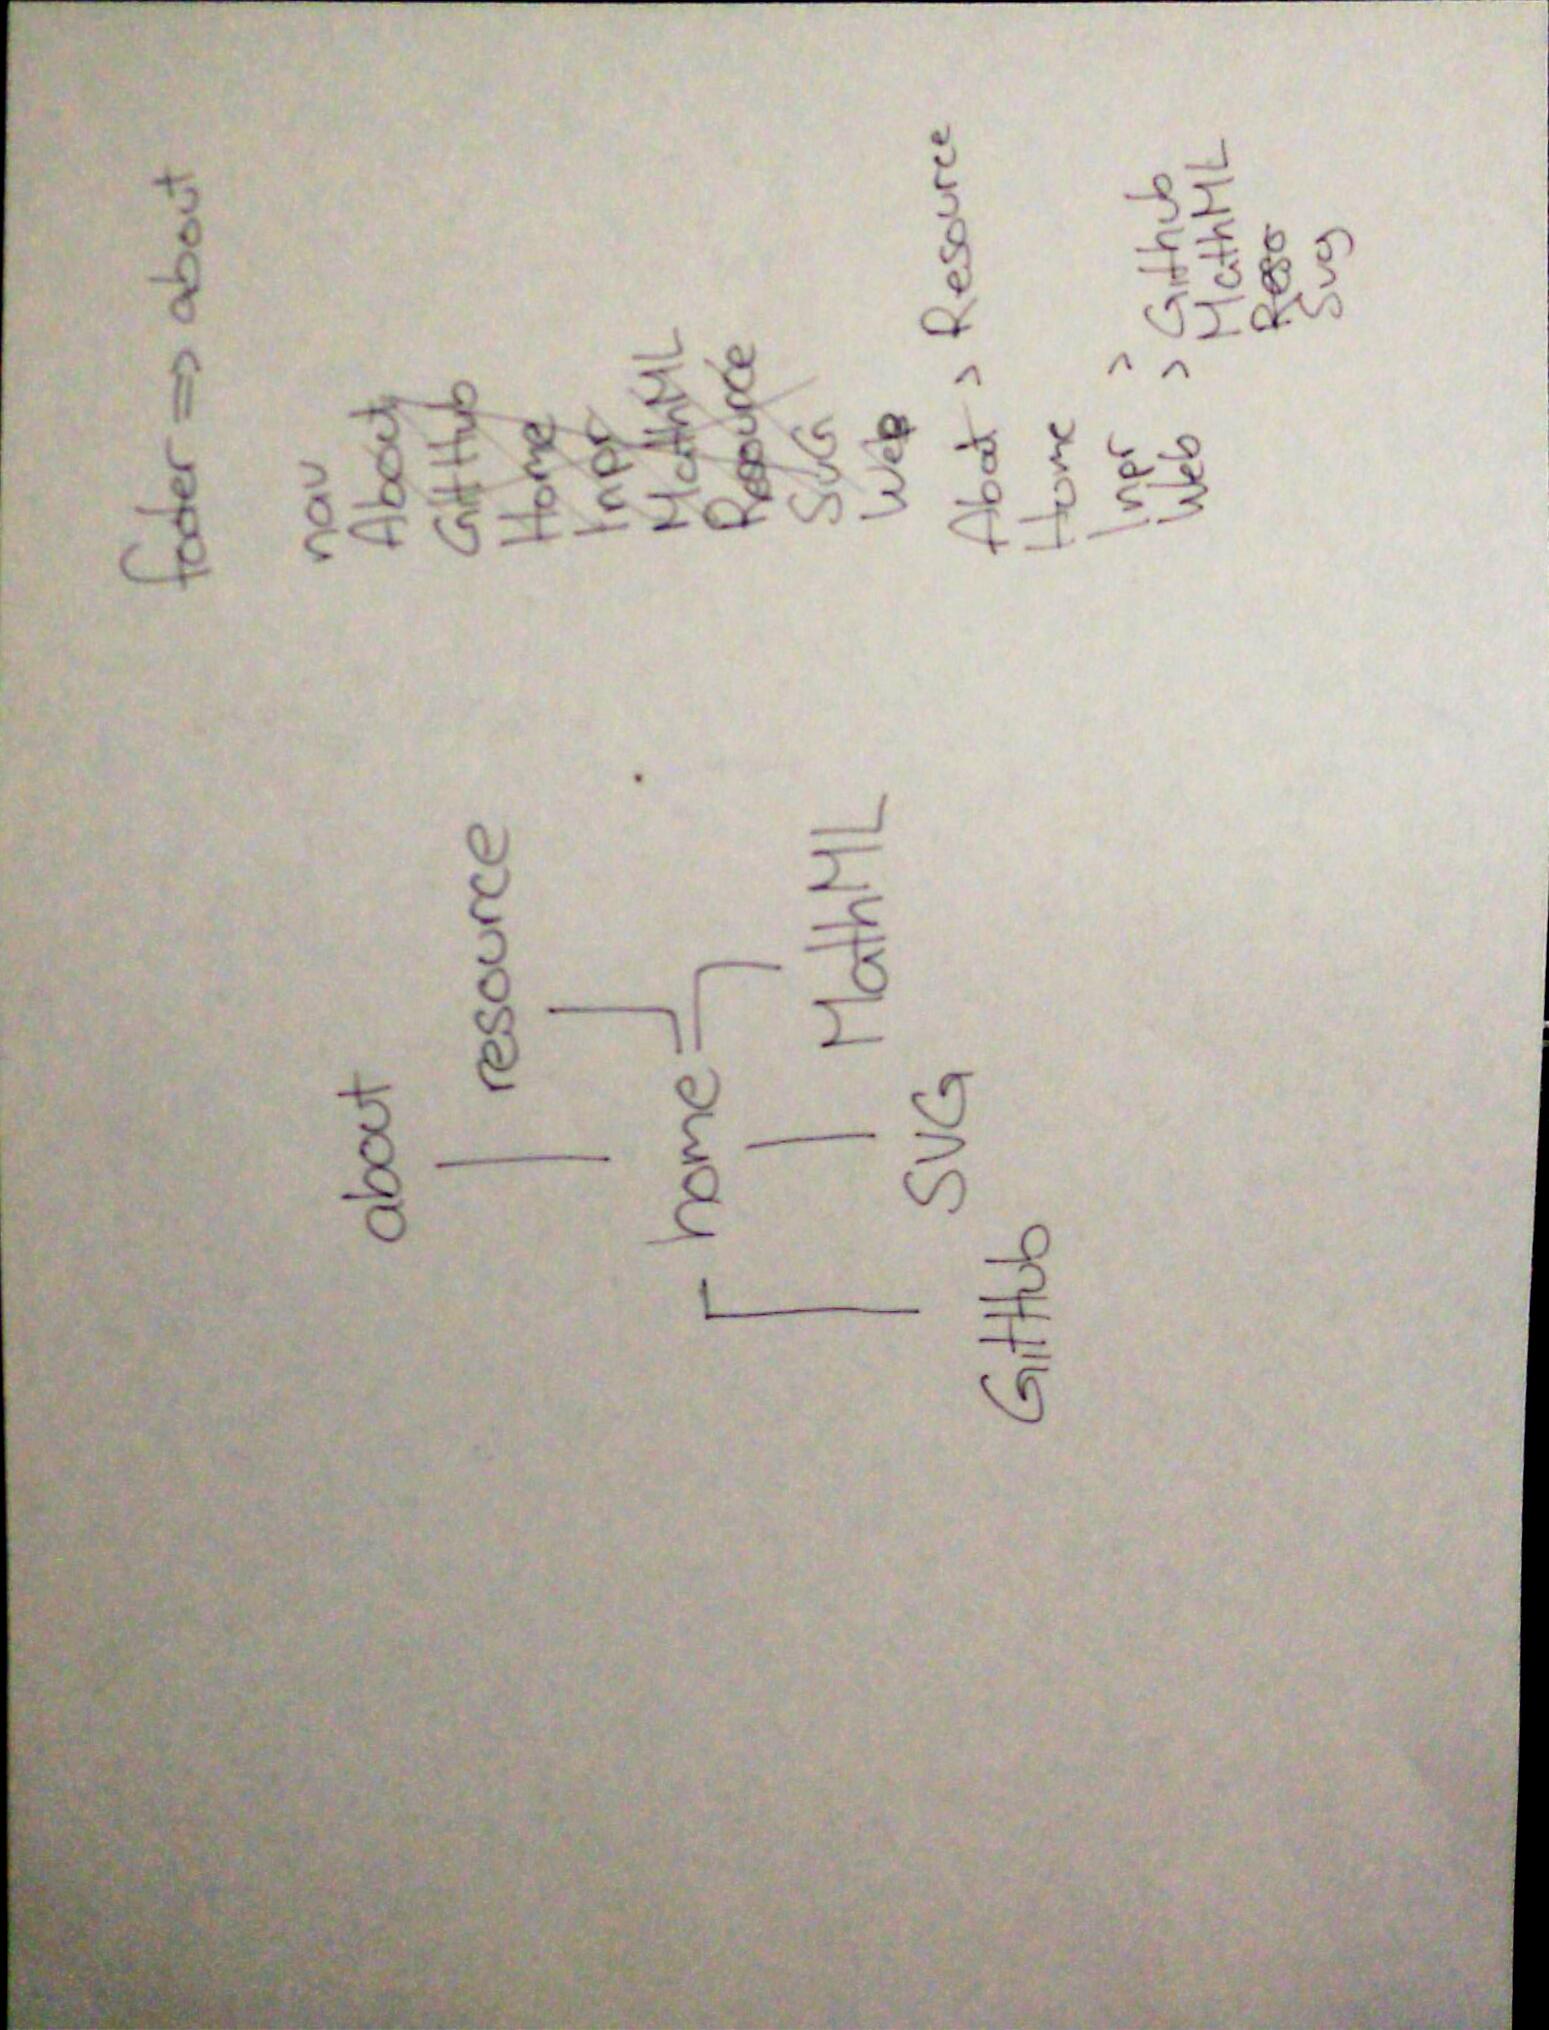 about
resource
home
MathML
SVG
GitHub
footer => about
nav
About
GitHub
Home
Inpr
MathML
Resource
SVG
Web
About > Resource
Home
Inpr >
Web > Github
MathML
Reso
Svg